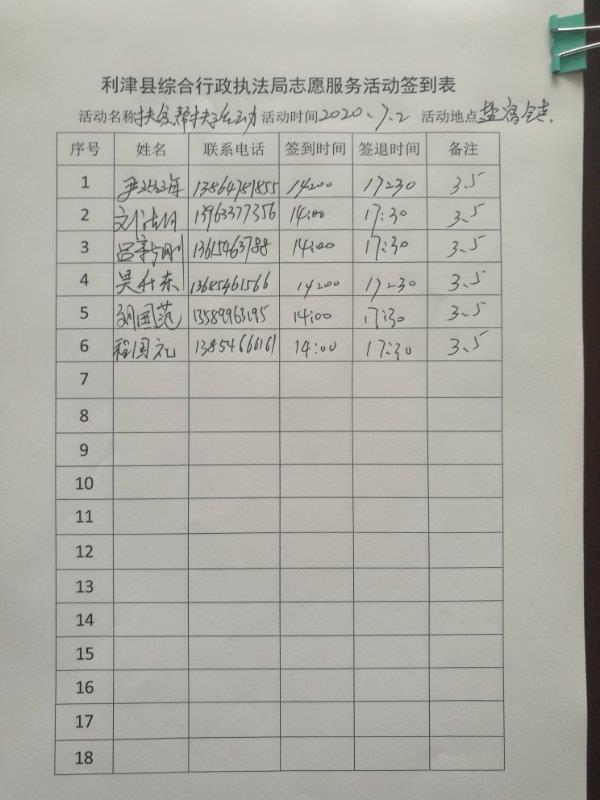 利津县综合行政执法局志愿服务活动签到表
活动名称扶贫帮扶活动 活动时间2020、7、2 活动地点盐窝镇
序号 姓名 联系电话 签到时间 签退时间 备注
1 13864781855 14:00 17:30 3.5
2 13963377356 14:00 17:30 3.5
3 13615463788 14:00 17:30 3.5
4 吴升东 13685461566 14:00 17:30 3.5
5 刘国范 13589963195 14:00 17:30 3.5
6 程国礼 13854666161 14:00 17:30 3.5
7
8
9
10
11
12
13
14
15
16
17
18